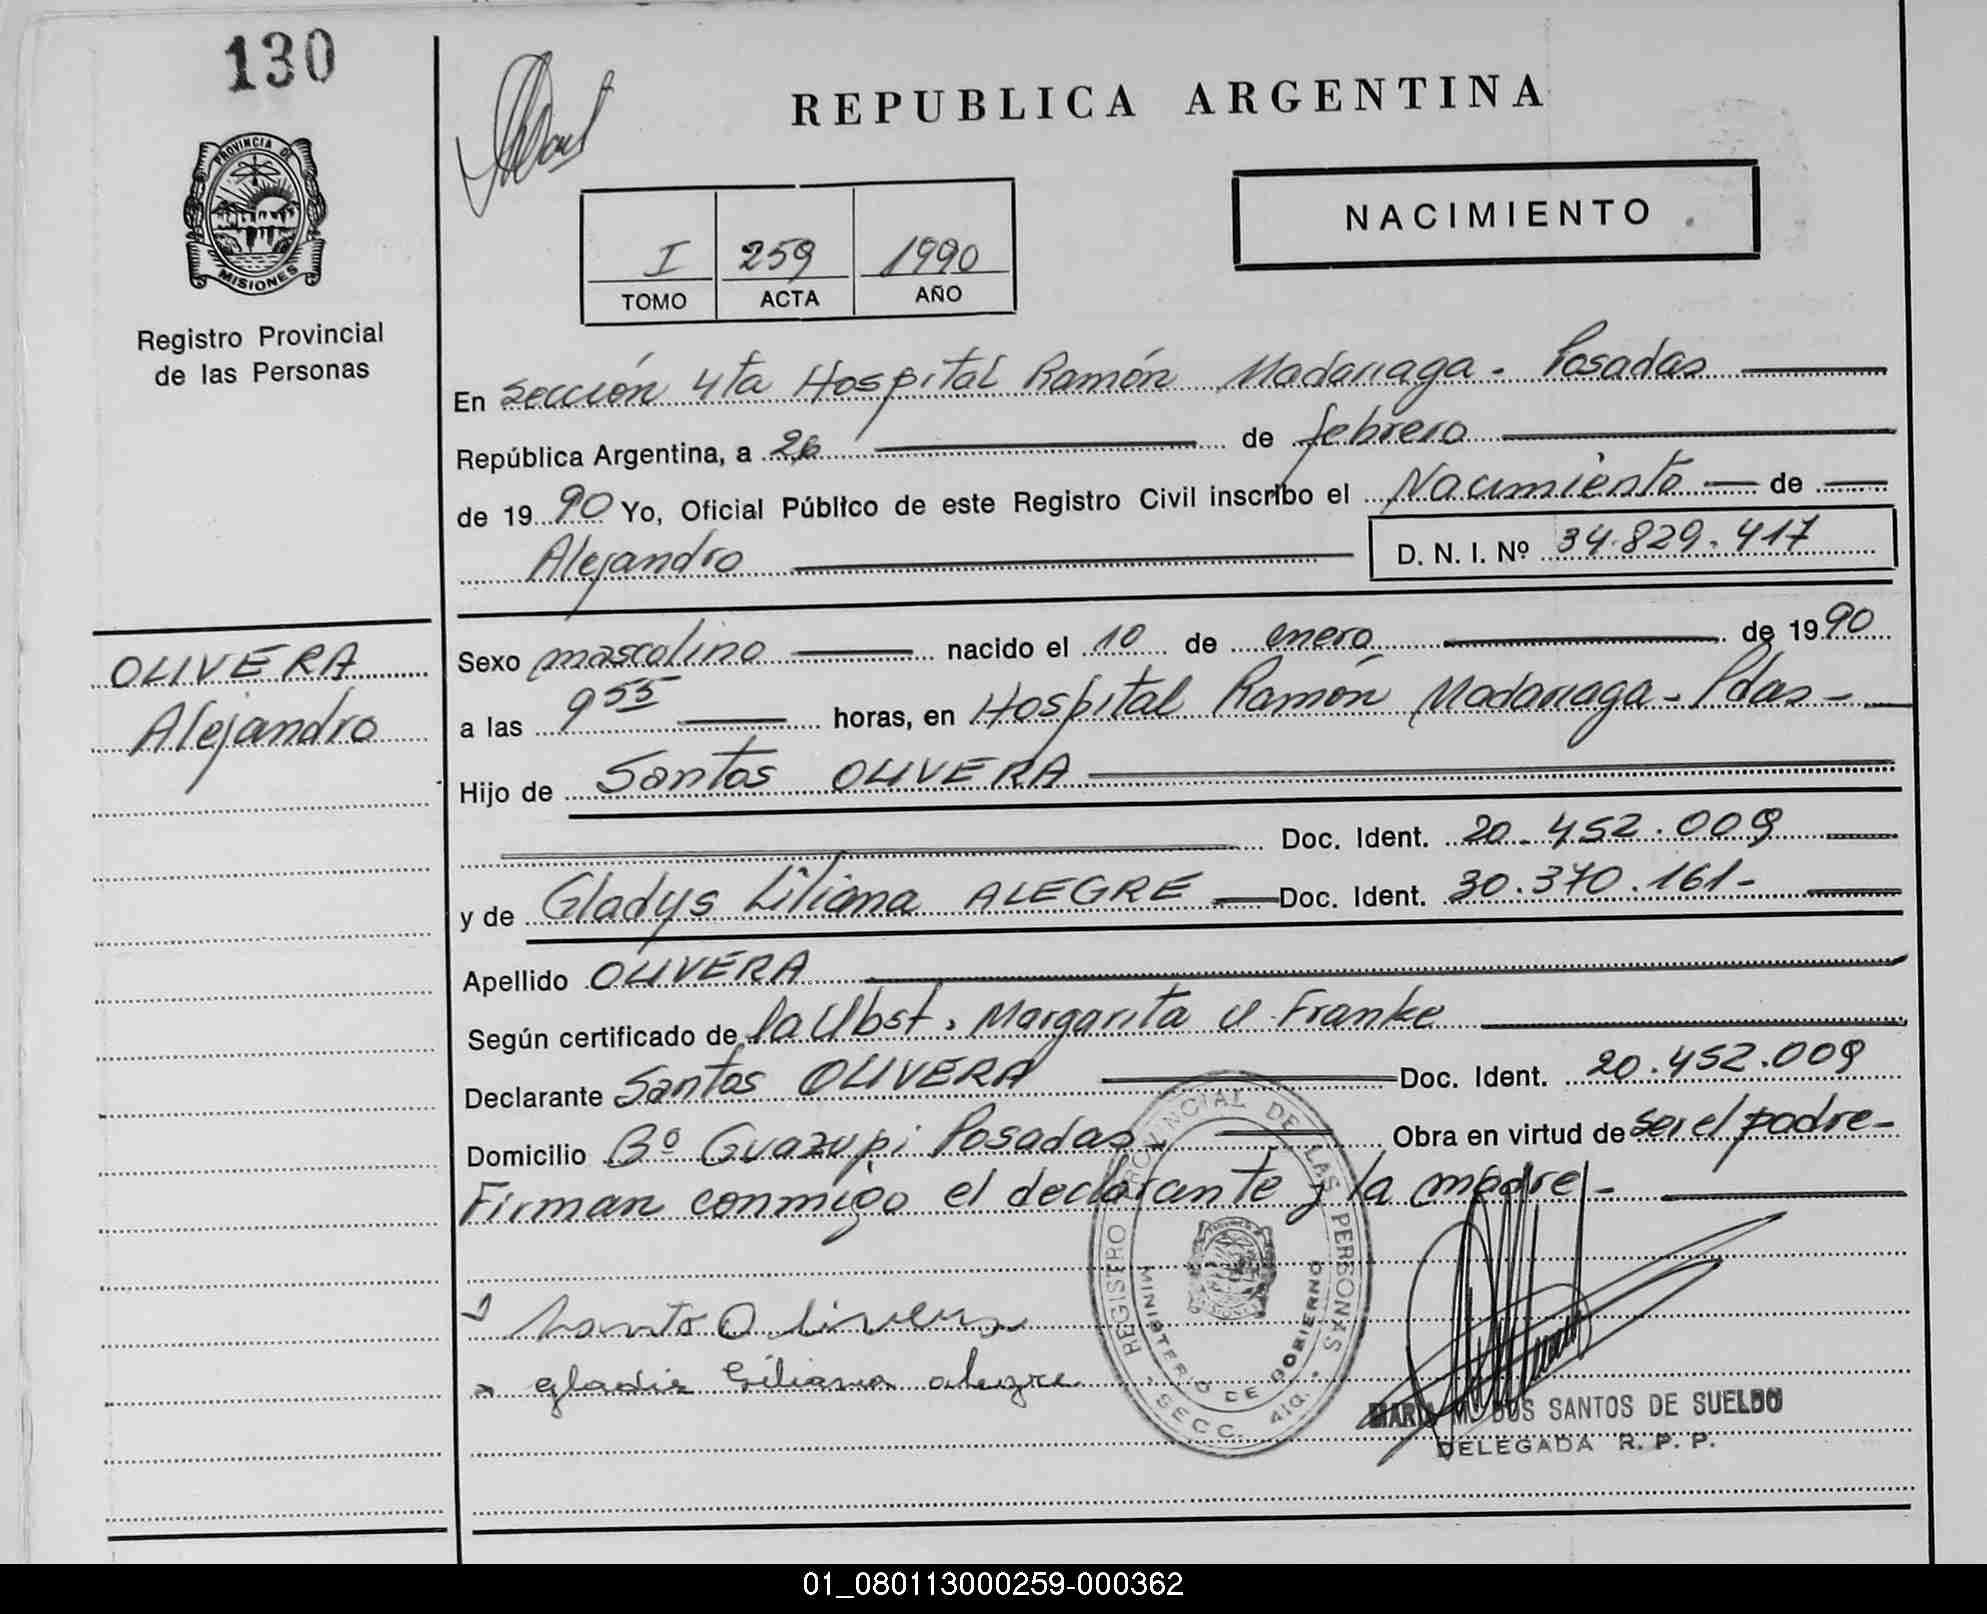 130
REPUBLICA ARGENTINA
PROVINCIA DE
MISIONES
NACIMIENTO
I 259 1990
TOMO ACTA AÑO
Registro Provincial
de las Personas
En Sección 4ta Hospital Ramón Madariaga - Posadas
República Argentina, a 26 de febrero
de 19 90 Yo, Oficial Público de este Registro Civil inscribo el Nacimiento de
Alejandro D. N. I. Nº 34.829.417
OLIVERA
Alejandro
Sexo masculino nacido el 10 de enero de 19 90
a las 9 55 horas, en Hospital Ramón Madariaga - Pdas -
Hijo de Santos OLIVERA
Doc. Ident. 20.452.009
y de Gladys Liliana ALEGRE Doc. Ident. 30.370.161-
Apellido OLIVERA
Según certificado de la Obst. Margarita Franke
Declarante Santos OLIVERA Doc. Ident. 20.452.009
Domicilio Bº Guazupi Posadas Obra en virtud de ser el padre-
Firman conmigo el declarante y la madre-
REGISTRO PROVINCIAL DE LAS PERSONAS
MINISTERIO DE GOBIERNO
SECC. 4ta.
Santo Olivera
gladis Liliana alegre
MARIA M. DOS SANTOS DE SUELDO
DELEGADA R. P. P.
01_080113000259-000362